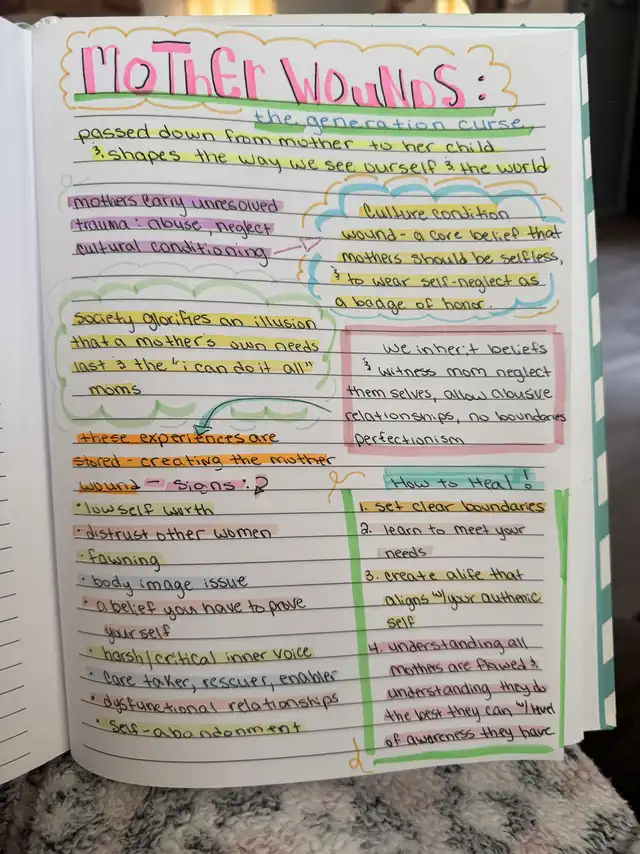 MOTHER WOUNDS:
the generation curse
passed down from mother to her child
& shapes the way we see ourself & the world
mothers carry unresolved
trauma: abuse, neglect
cultural conditioning
Culture condition
wound - a core belief that
mothers should be selfless,
& to wear self-neglect as
a badge of honor.
Society glorifies an illusion
that a mother's own needs
last & the "i can do it all"
moms
we inherit beliefs
& witness mom neglect
them selves, allow abusive
relationships, no boundaries
perfectionism
these experiences are
stored - creating the mother
wound - signs:
• low self worth
• distrust other women
• fawning
• body image issue
• a belief you have to prove
your self
• harsh/critical inner voice
• care taker, rescuer, enabler
• dysfunctional relationships
• self-abandonment
How to Heal!
1. set clear boundaries
2. learn to meet your
needs
3. create a life that
aligns w/your authenic
self
4. understanding all
mothers are flawed &
understanding they do
the best they can w/level
of awareness they have